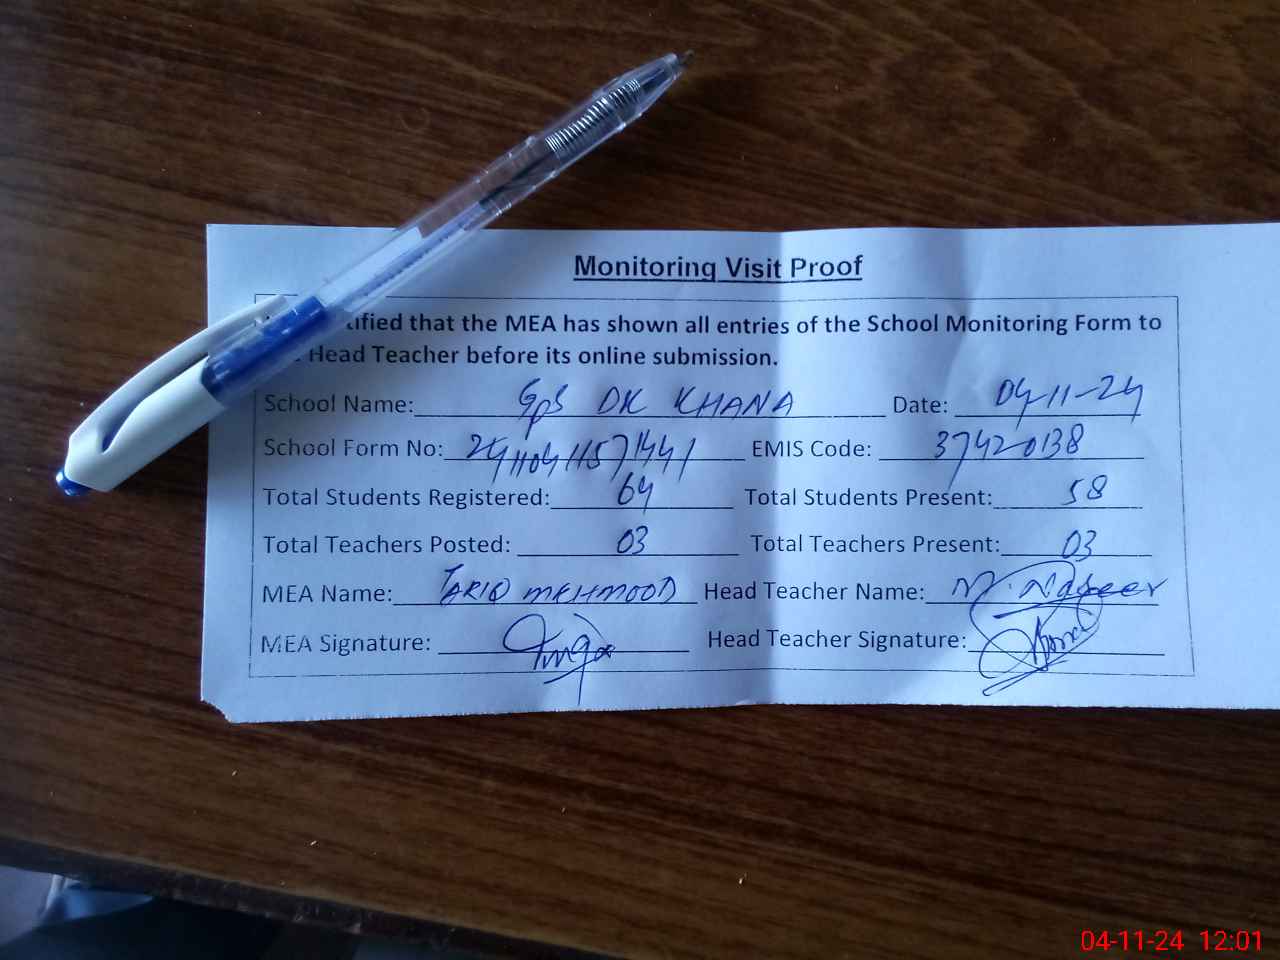 Monitoring Visit Proof
tified that the MEA has shown all entries of the School Monitoring Form to
Head Teacher before its online submission.
School Name: GPS DK KHANA Date: 04-11-24
School Form No: EMIS Code: 37420138
Total Students Registered: 64 Total Students Present: 58
Total Teachers Posted: 03 Total Teachers Present: 03
MEA Name: TARIQ MEHMOOD Head Teacher Name: M. Naseer
MEA Signature: Head Teacher Signature:
04-11-24 12:01